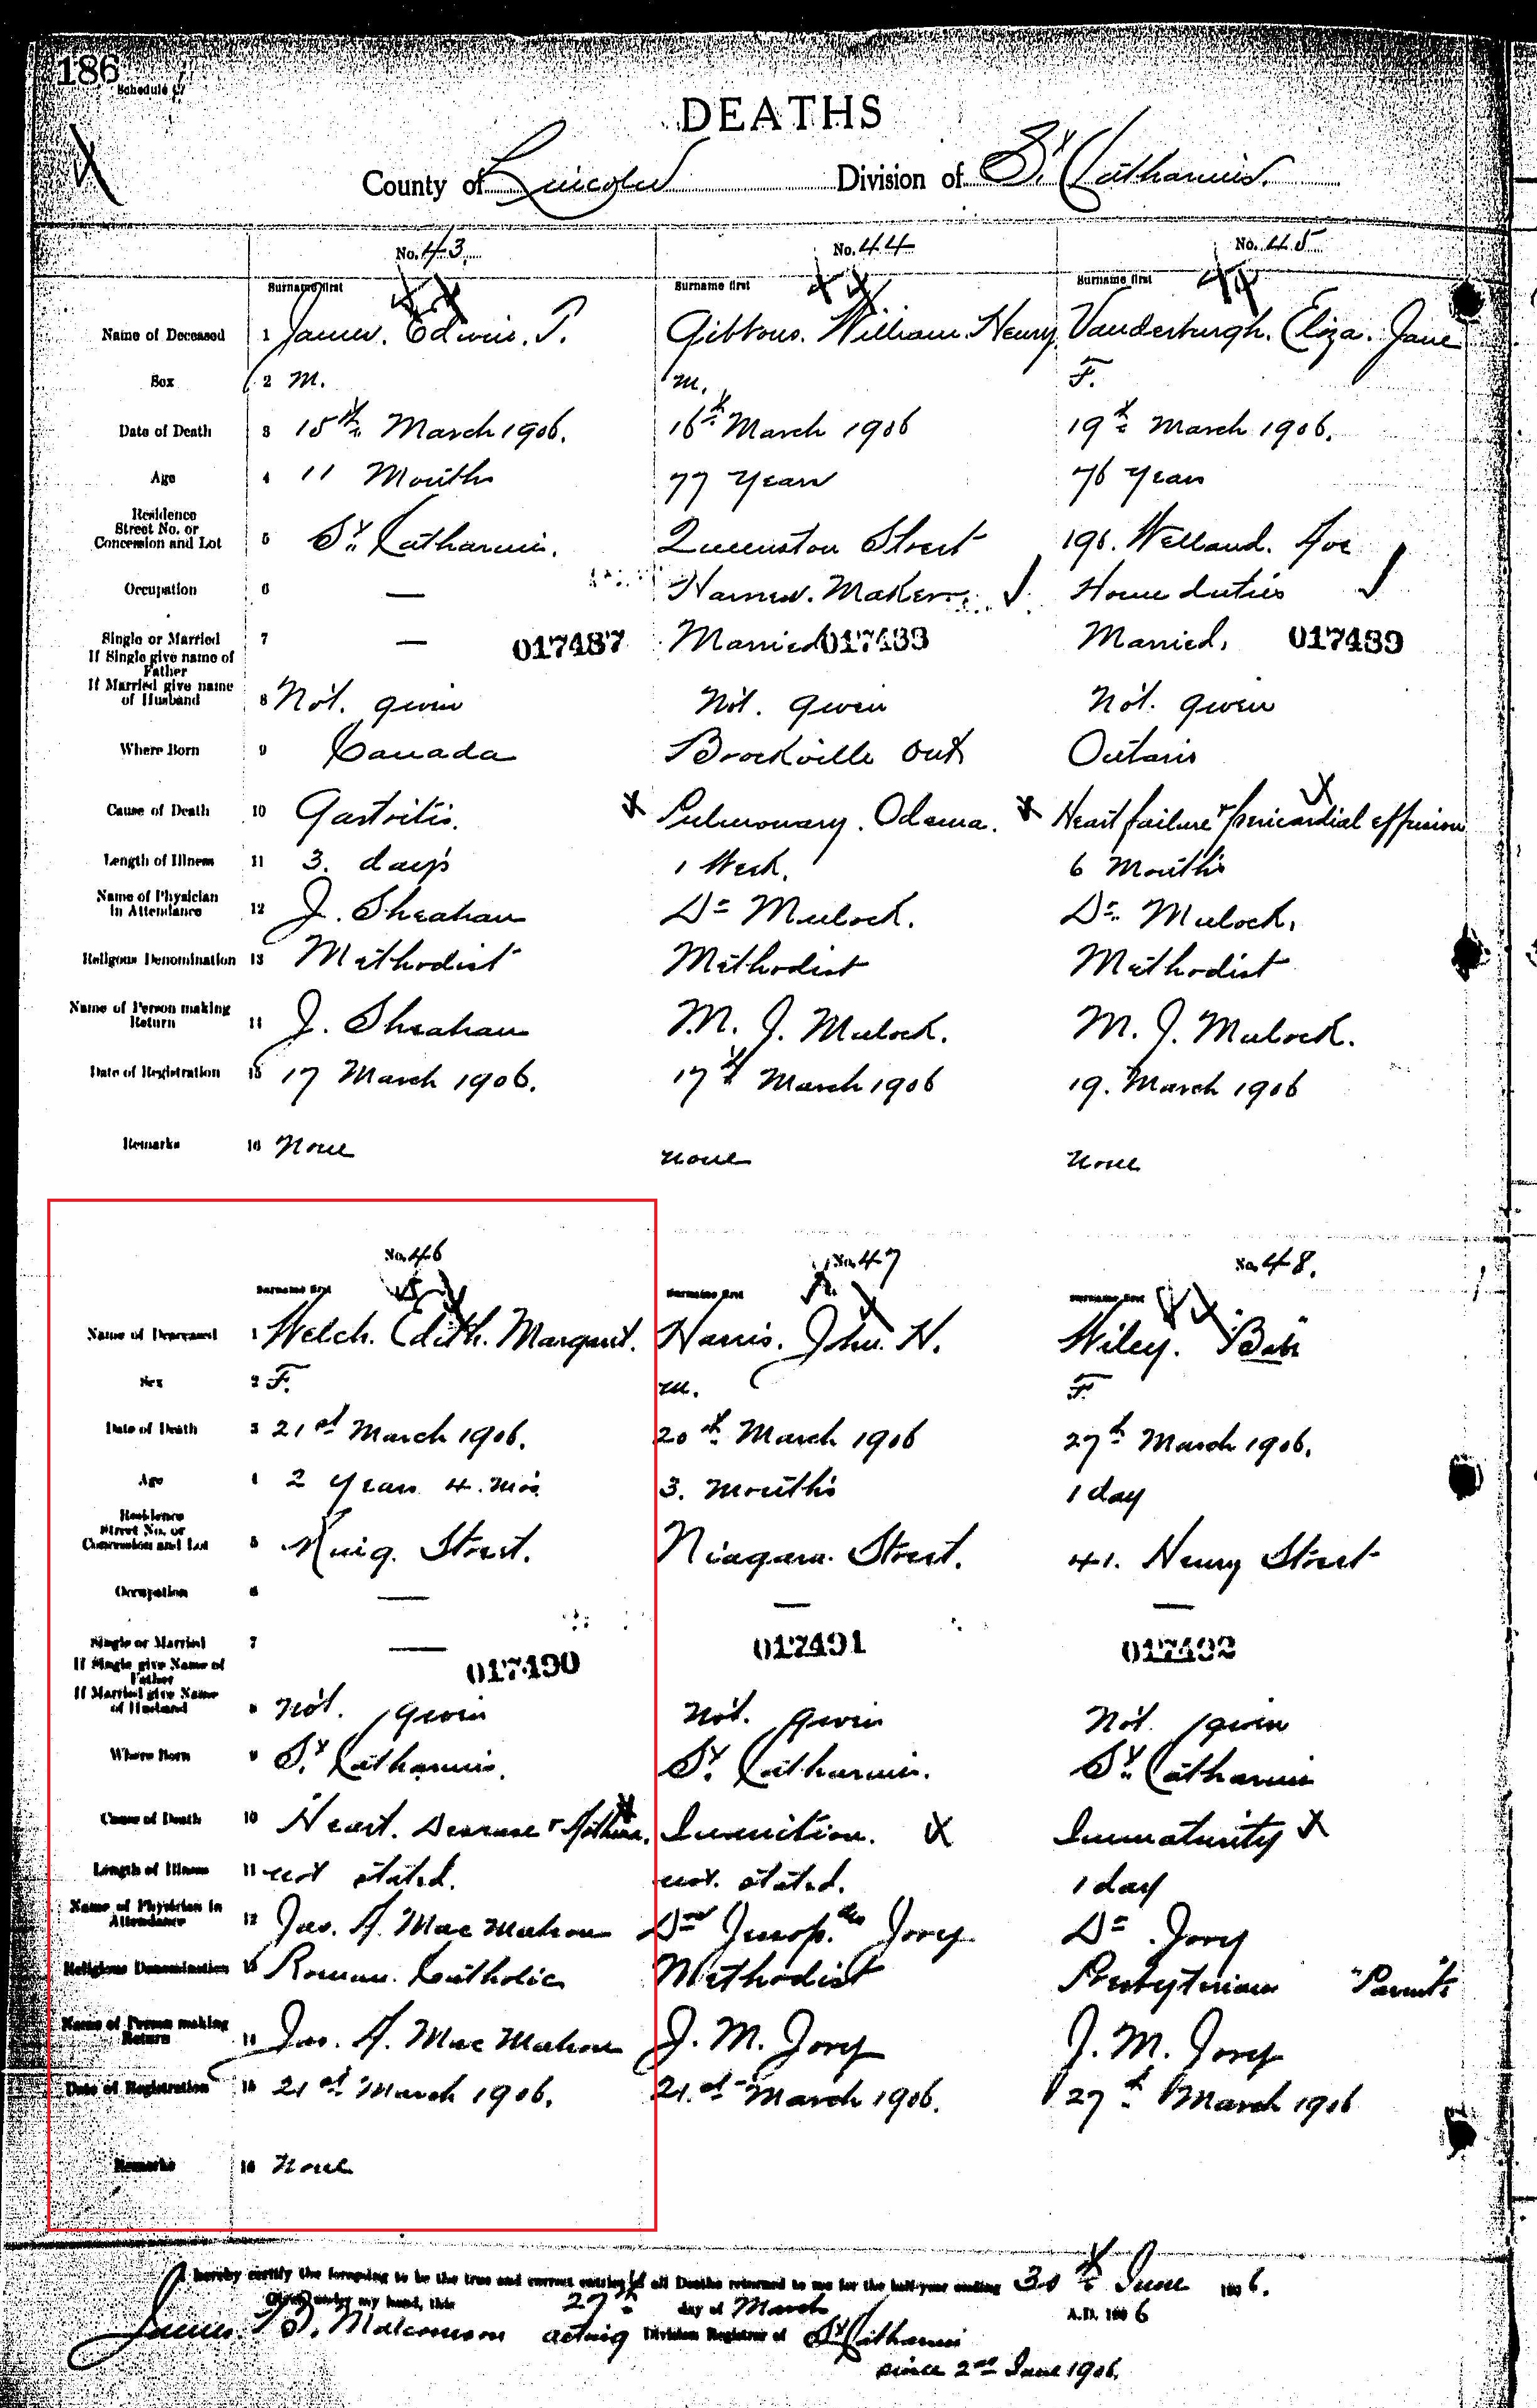 186
Schedule C
DEATHS
County of Lincoln Division of St. Catharines.
No. 43. No. 44 No. 45
Surname first Surname first Surname first
Name of Deceased 1 James. Edwin. T. Gibbons. William Henry Vanderburgh. Eliza. Jane
Sex 2 M. m. F.
Date of Death 3 15th March 1906. 16th March 1906 19th March 1906.
Age 4 11 Months 77 Years 76 Years
Residence
Street No. or
Concession and Lot 5 St. Catharines. Queenston Street 196. Welland. Ave
Occupation 6 — Harness. Maker. Home duties
Single or Married 7 — 017487 Married 017488 Married. 017489
If Single give name of
Father
If Married give name
of Husband 8 Not. given Not. given Not. given
Where Born 9 Canada Brockville Ont Ontario
Cause of Death 10 Gastritis. Pulmonary. Odema. Heart failure + pericardial effusion
Length of Illness 11 3. days 1 Week. 6 Months
Name of Physician
in Attendance 12 J. Sheahan Dr Mulock. Dr. Mulock.
Religous Denomination 13 Methodist Methodist Methodist
Name of Person making
Return 14 J. Sheahan M. J. Mulock. M. J. Mulock.
Date of Registration 15 17 March 1906. 17th March 1906 19. March 1906
Remarks 16 None none None
No. 46 No. 47 No. 48.
Surname first Surname first Surname first
Name of Deceased 1 Welch. Edith. Margaret. Harris. John. H. Wiley. "Babe"
Sex 2 F. m. F
Date of Death 3 21st March 1906. 20th March 1906 27th March 1906.
Age 4 2 Years 4. mos 3. Months 1 day
Residence
Street No. or
Concession and Lot 5 King. Street. Niagara. Street. 41. Henry Street
Occupation 6 — — —
Single or Married 7 — 017490 017491 017492
If Single give Name of
Father
If Married give Name
of Husband 8 not. given Not. given Not. given
Where Born 9 St. Catharines. St. Catharines. St. Catharines
Cause of Death 10 Heart. Disease + Asthma. Inanition. Immaturity
Length of Illness 11 not stated. not. stated. 1 day
Name of Physician in
Attendance 12 Jas. A. Mac Mahon Drs Jessop. & Jory Dr. Jory
Religious Denomination 13 Roman. Catholic Methodist Presbyterian "Parents"
Name of Person making
Return 14 Jas. A. Mac Mahon J. M. Jory J. M. Jory
Date of Registration 15 21st March 1906. 21st March 1906. 27th March 1906
Remarks 16 None
I hereby certify the foregoing to be the true and correct entries of all Deaths returned to me for the half-year ending 30th June 1906.
Given under my hand, this 27th day of March A.D. 1906
James. Malcomson acting Division Registrar of St Catharines
since 2nd June 1906.